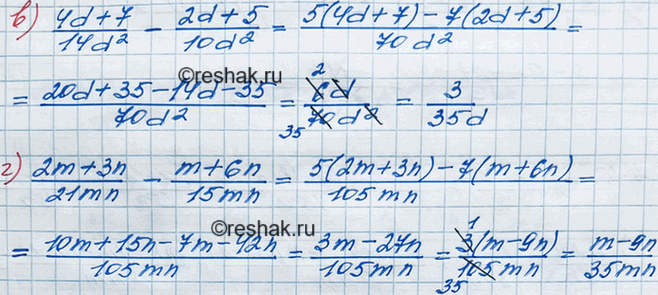 в) (4d+7)/(14d²) − (2d+5)/(10d²) = (5(4d+7)−7(2d+5))/(70d²) =
©reshak.ru
= (20d+35−14d−35)/(70d²) = (6d)/(70d²) 2 35 = 3/(35d)
г) (2m+3n)/(21mn) − (m+6n)/(15mn) = (5(2m+3n)−7(m+6n))/(105mn) =
©reshak.ru
= (10m+15n−7m−42n)/(105mn) = (3m−27n)/(105mn) = (3(m−9n))/(105mn) 1 35 = (m−9n)/(35mn)